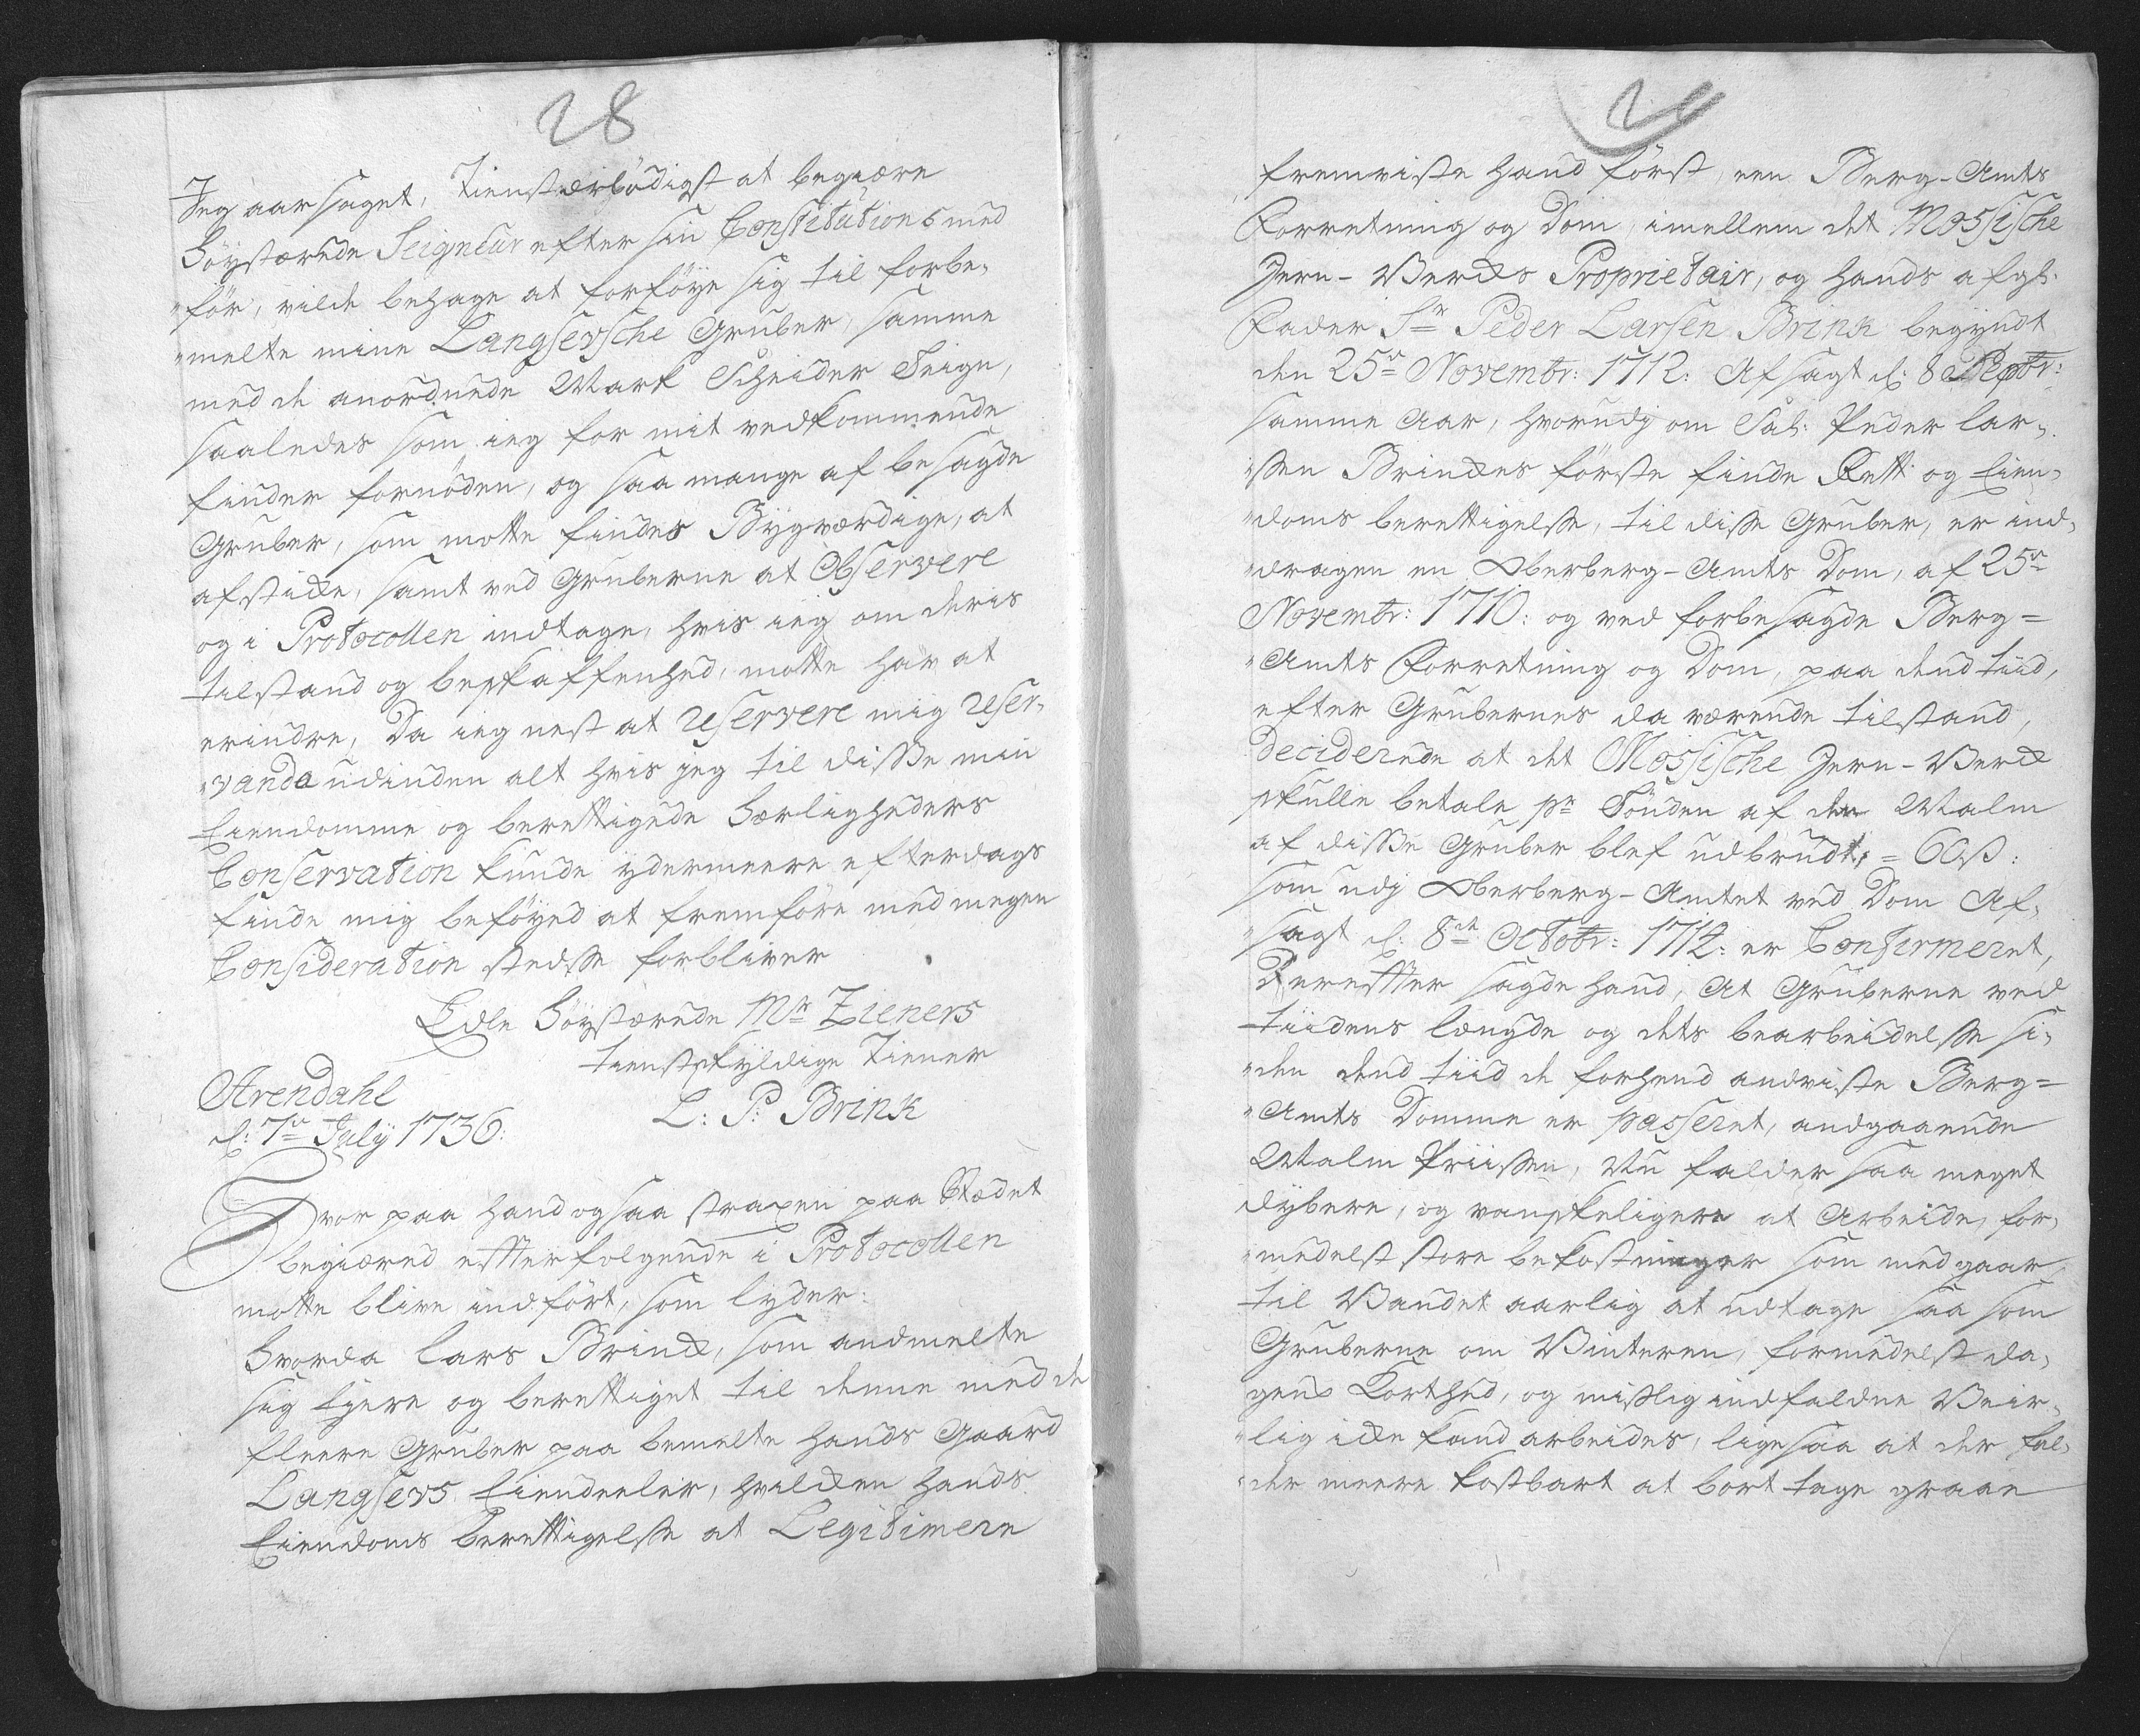 28
Jeg aarsaget, tienstærbödigst at begiære
Höystærede Seigneur efter sin Constitution med
för, vilde behage at forföye sig til forbe,
melte mine Langsevsche Gruber, samme
med de anordnede Mark Scheider Seigne,
saaledes som ieg for mit vedkommende
finder fornöden, og saa mange af besagde
Gruber, som motte findes Bygværdige, at
afstikke, samt ved Gruberne at Observere
og i Protocollen indtage, hvis ieg om deris
tilstand og beskaffenhed, motte hav at
erindre, Da ieg nest at reservere mig reser,
vanda udinden alt hvis jeg til disse min
Eiendomme og berettigede Herligheders
Conservation kunde ydermeere efterdags
finde mig beföyed at fremföre med megen
Consideration stedsse forbliver
Edle Höystærede Mr Zieners
tienstskyldige Tiener
Arendahl
L: P: Brink
d: 7de July 1736:
Hvor paa hand ogsaa straxen paa Stædet
begiæred effterfolgende i Protocollen
motte blive indfört, som lyder:
Hvorda Lars Brinck, som andmelte
sig Eyere og berettiget til denne med de
fleere Gruber paa bemelte hands Gaard
Langsevs Eiendeeler, hvilken hands
Eiendoms berettigelsse at Legitimere
fremviste hand först, een Berg-Amts
Forretning og Dom, imellem det Mossische
Jern-Vercks Proprietair, og hands afgl.
Fader Sr Peder Larsen Brink begyndt
den 25de Novembr: 1712: Afsagt d: 8 Septbr:
samme Aar, hvorudj om Sal: Peder Lar,
ssen Brinckes förste finde Rett og Eien,
doms berettigelsse, til disse Gruber, er ind,
dragen en Oberberg-Amts Dom, af 25de
Novembr: 1710: og ved forbesagde Berg=
Amts Forretning og Dom, paa dend tiid,
efter Grubernes da værende tilstand,
Deciderede at det Mossische Jern-Verck
skulle betale pr Tönden af den Malm
af disse Gruber blef udbrudt, = 60 ß:
som udj Oberberg-Amtet ved Dom Af,
sagt d: 8de Octobr: 1714: er Confirmeret,
Dereffter sagde hand, At Gruberne ved
tiidens længde og dets bearbeidelsse si,
den dend tiid de forhend andviste Berg=
Amts Domme er passeret, andgaaende
Malm Priissen, Nu falder saa meget
dybere, og vanskeligere at Arbeide, for,
medelst store bekostninger som medgaar
til Vandet aarlig at udtage saa som
Gruberne om Vinteren, formedelst da,
gens Korthed, og misslig indfaldne Veir,
lig icke kand arbeides, ligesaa at der fal,
der meere kostbart at bort tage graae